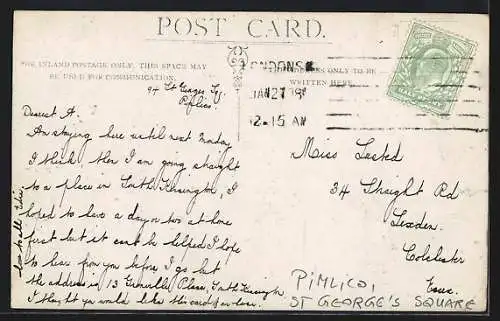 POST CARD.
FOR INLAND POSTAGE ONLY, THIS SPACE MAY
BE USED FOR COMMUNICATION.
94 St Georges Sq.
Pimlico.
Dearest A.
Am staying here until next Monday
I think then I am going straight
to a place in South Kensington, I
hoped to have a day or two at home
first but it cant be helped I hope
to hear from you before I go but
the address is 13 Grenville Place, South Kensington
I thought you would like this card
love to all
LONDON S.
JAN 27 08
12-15 AM
ONLY TO BE
WRITTEN HERE.
Miss Lasted
34 Straight Rd
Lexden.
Colchester
Essex.
PIMLICO,
ST GEORGE'S SQUARE